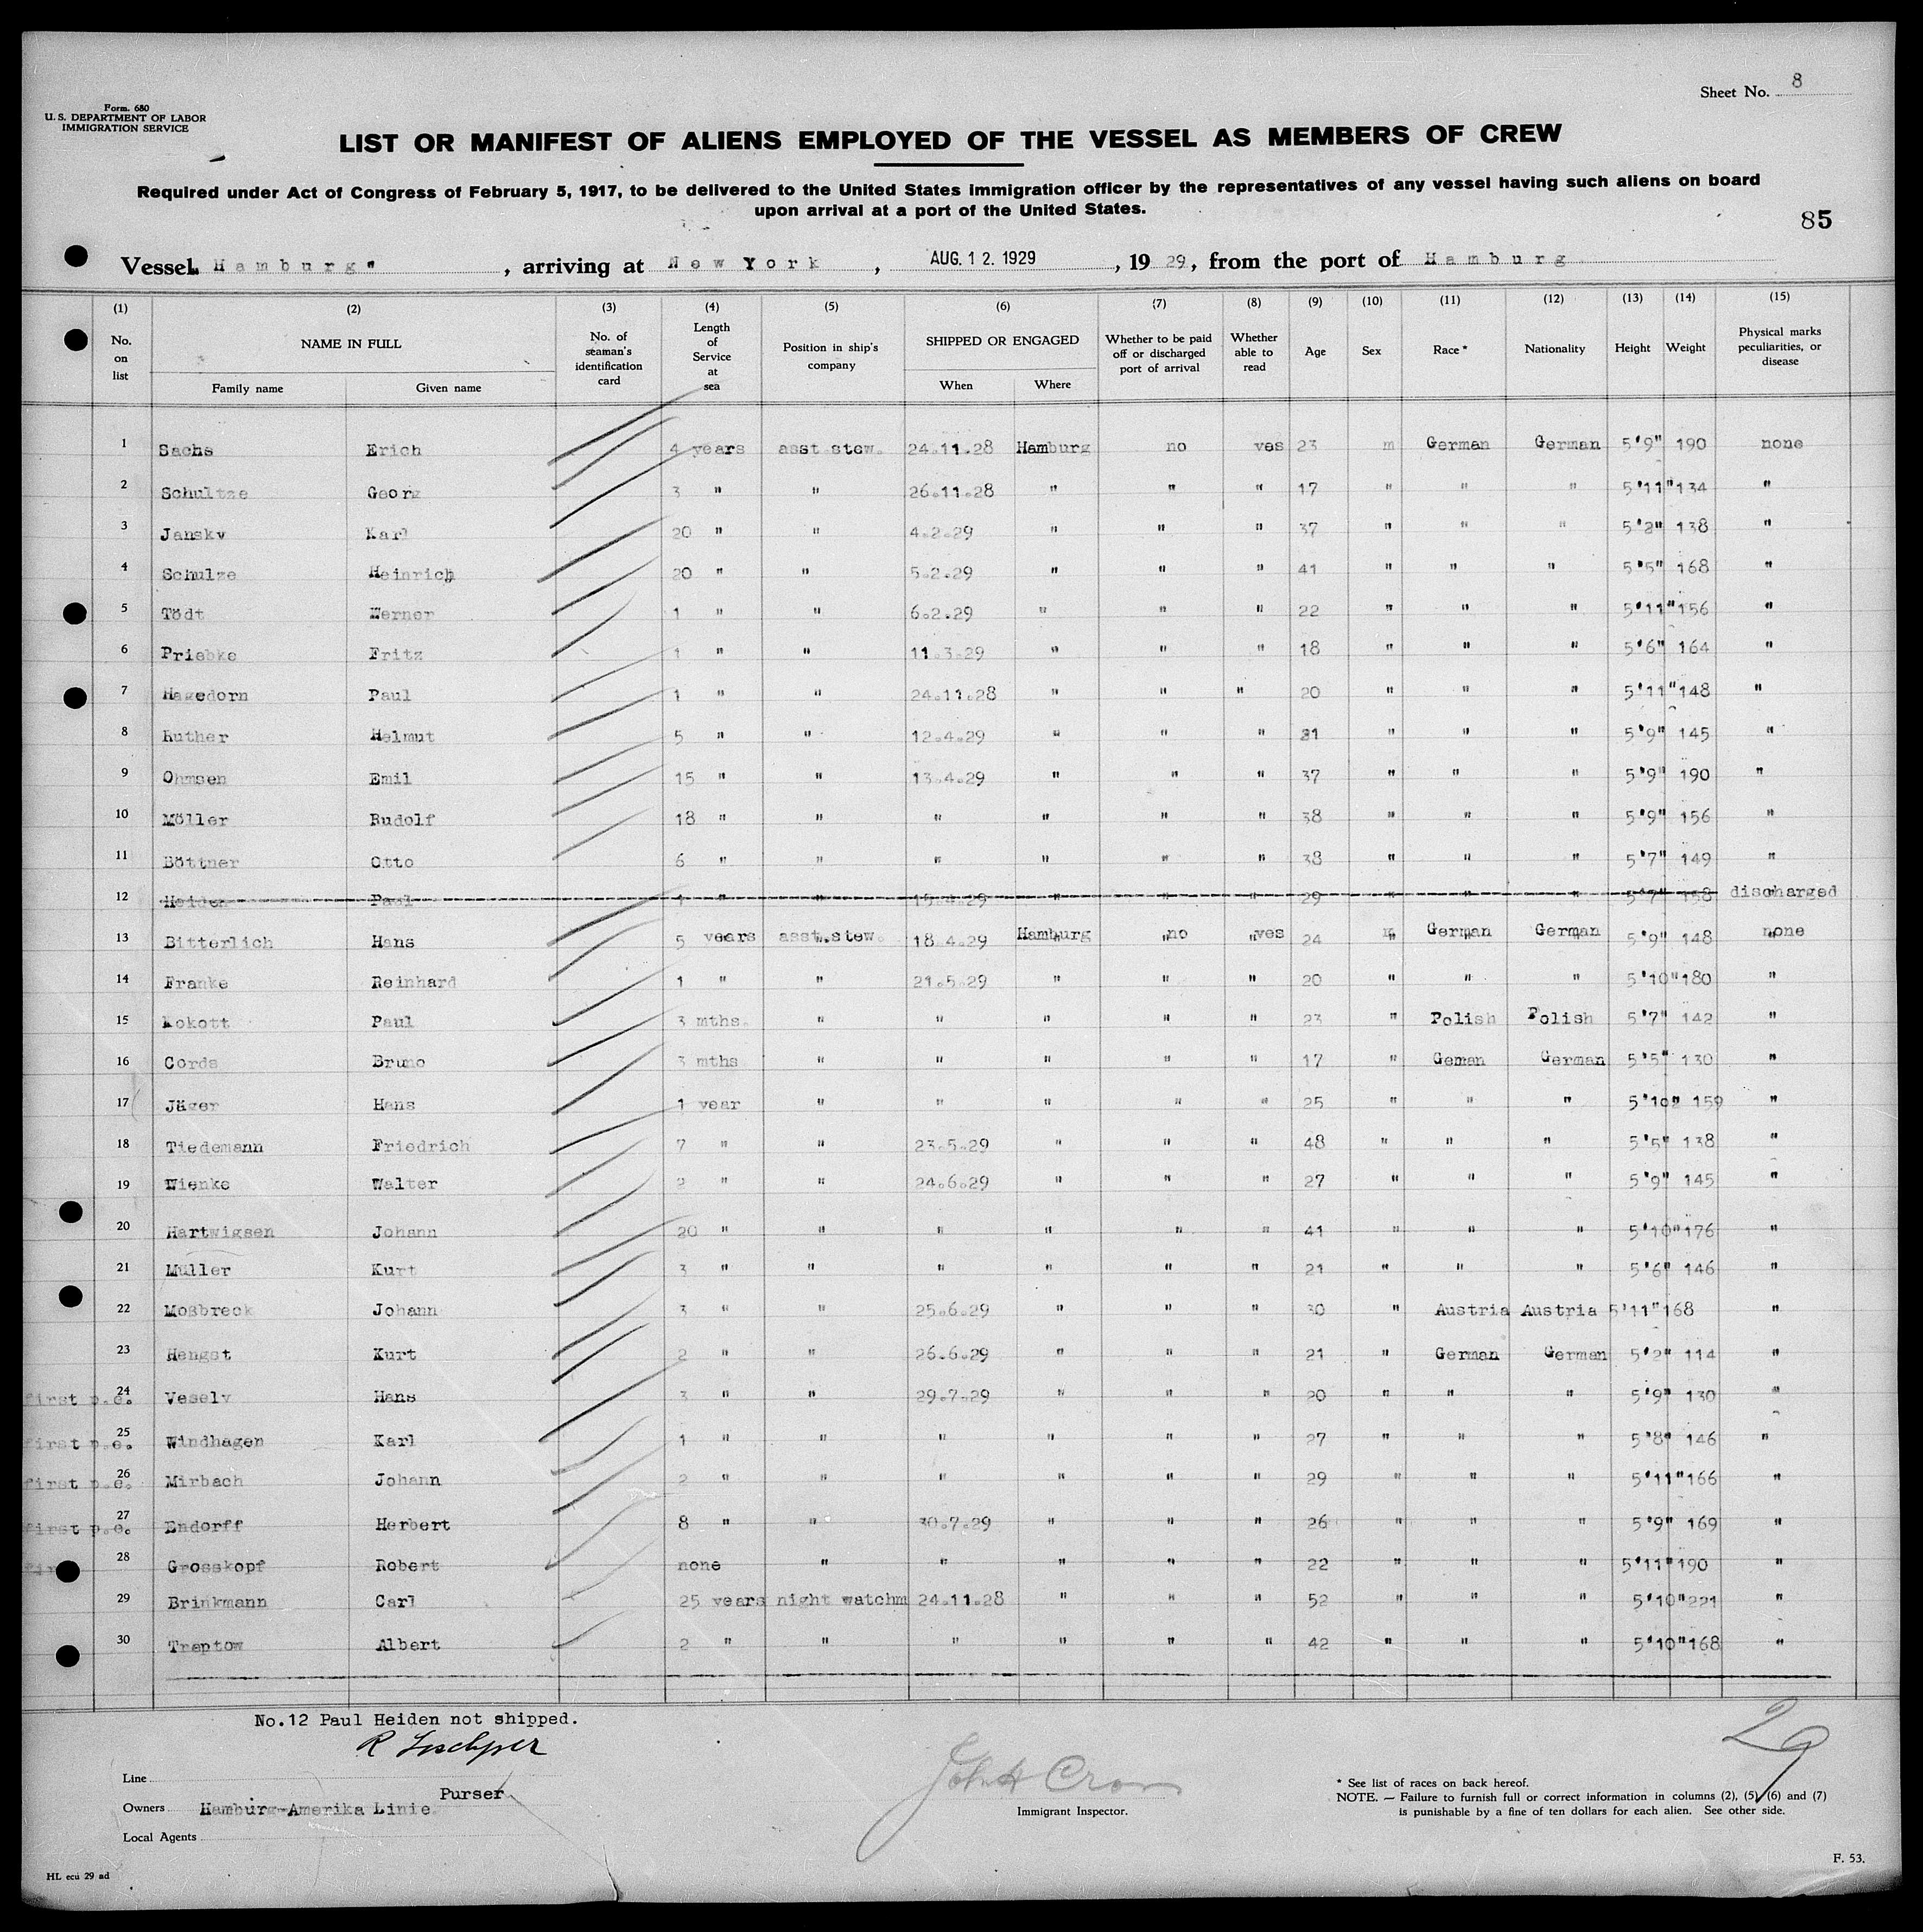 Sheet No. 8
Form. 680
U. S. DEPARTMENT OF LABOR
IMMIGRATION SERVICE
LIST OR MANIFEST OF ALIENS EMPLOYED OF THE VESSEL AS MEMBERS OF CREW
Required under Act of Congress of February 5, 1917, to be delivered to the United States immigration officer by the representatives of any vessel having such aliens on board
upon arrival at a port of the United States.
85
Vessel Hamburg" , arriving at New York , AUG. 12. 1929 , 19 29, from the port of Hamburg
(1) (2) (3) (4) (5) (6) (7) (8) (9) (10) (11) (12) (13) (14) (15)
No. on list NAME IN FULL Family name Given name No. of seaman's identification card Length of Service at sea Position in ship's company SHIPPED OR ENGAGED When Where Whether to be paid off or discharged port of arrival Whether able to read Age Sex Race * Nationality Height Weight Physical marks peculiarities, or disease
1 Sachs Erich 4 years asst stew. 24.11.28 Hamburg no yes 23 m German German 5'9" 190 none
2 Schultze Georg 3 " " 26.11.28 " " " 17 " " " 5'11" 134 "
3 Jansky Karl 20 " " 4.2.29 " " " 37 " " " 5'2" 138 "
4 Schulze Heinrich 20 " " 5.2.29 " " " 41 " " " 5'5" 168 "
5 Tödt Werner 1 " " 6.2.29 " " " 22 " " " 5'11" 156 "
6 Priebke Fritz 1 " " 11.3.29 " " " 18 " " " 5'6" 164 "
7 Hagedorn Paul 1 " " 24.11.28 " " " 20 " " " 5'11" 148 "
8 Luther Helmut 5 " " 12.4.29 " " " 21 " " " 5'9" 145 "
9 Ohmsen Emil 15 " " 13.4.29 " " " 37 " " " 5'9" 190 "
10 Möller Rudolf 18 " " " " " " 38 " " " 5'9" 156 "
11 Böttner Otto 6 " " " " " " 38 " " " 5'7" 149 "
12 Heiden Paul 1 " " 15.4.29 " " " 29 " " " 5'7" 158 discharged
13 Bitterlich Hans 5 years asst.stew. 18.4.29 Hamburg no yes 24 m German German 5'9" 148 none
14 Franke Reinhard 1 " " 21.5.29 " " " 20 " " " 5'10" 180 "
15 Kokott Paul 3 mths. " " " " " 23 " Polish Polish 5'7" 142 "
16 Cords Bruno 3 mths " " " " " 17 " Geman German 5'5" 130 "
17 Jäger Hans 1 year " " " " " 25 " " " 5'10" 159 "
18 Tiedemann Friedrich 7 " " 23.5.29 " " " 48 " " " 5'5" 138 "
19 Wienke Walter 2 " " 24.6.29 " " " 27 " " " 5'9" 145 "
20 Hartwigsen Johann 20 " " " " " " 41 " " " 5'10" 176 "
21 Müller Kurt 3 " " " " " " 21 " " " 5'6" 146 "
22 Moßbreck Johann 3 " " 25.6.29 " " " 30 " Austria Austria 5'11" 168 "
23 Hengst Kurt 2 " " 26.6.29 " " " 21 " German German 5'2" 114 "
first p.e. 24 Vesely Hans 3 " " 29.7.29 " " " 20 " " " 5'9" 130 "
first p.e. 25 Windhagen Karl 1 " " " " " " 27 " " " 5'8" 146 "
first p.e. 26 Mirbach Johann 2 " " " " " " 29 " " " 5'11" 166 "
first p.e. 27 Endorff Herbert 8 " " 30.7.29 " " " 26 " " " 5'9" 169 "
28 Grosskopf Robert none " " " " " 22 " " " 5'11" 190 "
29 Brinkmann Carl 25 years night watchm 24.11.28 " " " 52 " " " 5'10" 221 "
30 Treptow Albert 2 " " " " " " 42 " " " 5'10" 168 "
No.12 Paul Heiden not shipped.
29
Line
Purser
Owners Hamburg-Amerika Linie
Local Agents
John H Cron
Immigrant Inspector.
* See list of races on back hereof.
NOTE. — Failure to furnish full or correct information in columns (2), (5), (6) and (7)
is punishable by a fine of ten dollars for each alien. See other side.
HL ecu 29 ad
F. 53.